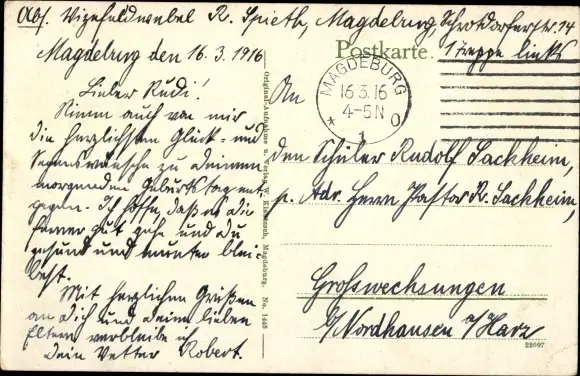 Abs. Vizefeldwebel R. Spieth, Magdeburg, Schrotdorferstr. 14
1 Treppe links
Magdeburg den 16.3.1916
Postkarte.
Lieber Rudi!
Nimm auch von mir
die herzlichsten Glück- und
Segenswünsche zu deinem
morgenden Geburtstag ent-
gegen. Ich hoffe, daß es dir
ferner gut gehe und du
gesund und munter blei-
best.
Mit herzlichen Grüßen
an dich und deine lieben
Eltern verbleibe ich
dein Vetter Robert.
Original-Aufnahme u. Verlag W. Magdeburg. No. 1449
MAGDEBURG
16.3.16
4-5N
* 1 o
An
den Schüler Rudolf Sackheim,
p. Adr. Herrn Pastor R. Sackheim,
Großwechsungen
b/Nordhausen a/Harz
22697